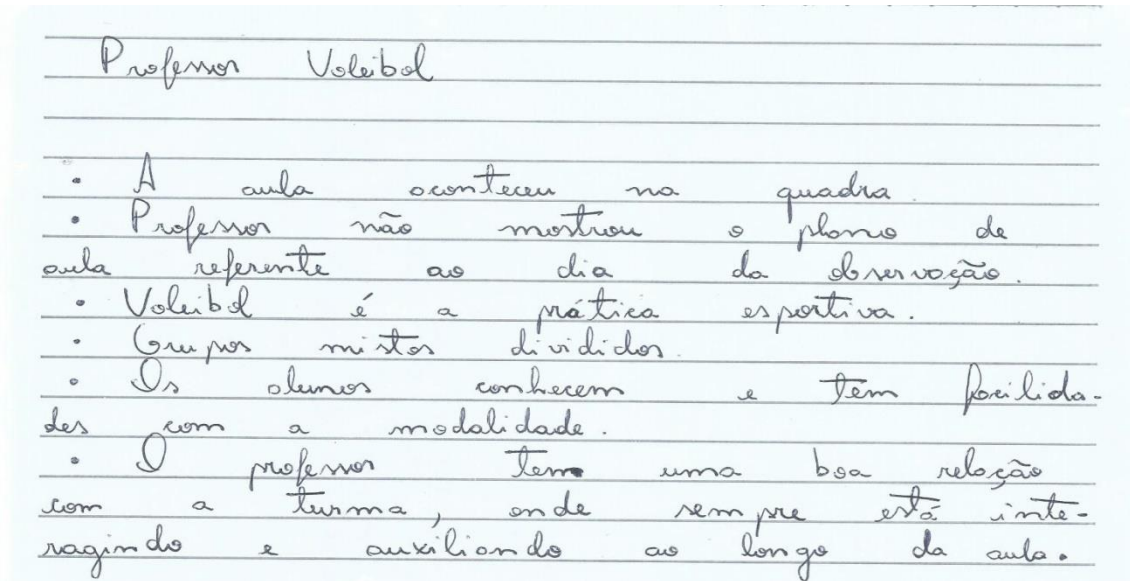 Professor Voleibol
• A aula aconteceu na quadra.
• Professor não mostrou o plano de
aula referente ao dia da observação.
• Voleibol é a prática esportiva.
• Grupos mistos divididos.
• Os alunos conhecem e tem facilida-
des com a modalidade.
• O professor tem uma boa relação
com a turma, onde sempre está inte-
ragindo e auxiliando ao longo da aula.